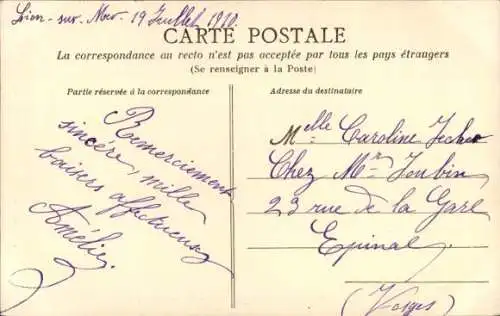 Lion-sur-Mer 19 Juillet 1910.
CARTE POSTALE
La correspondance au recto n'est pas acceptée par tous les pays étrangers
(Se renseigner à la Poste)
Partie réservée à la correspondance
Adresse du destinataire
Remerciements
sincère, mille
baisers affectueux
Amélie.
Melle Caroline
Chez Mr Joubin
23 rue de la Gare
Epinal
(Vosges)